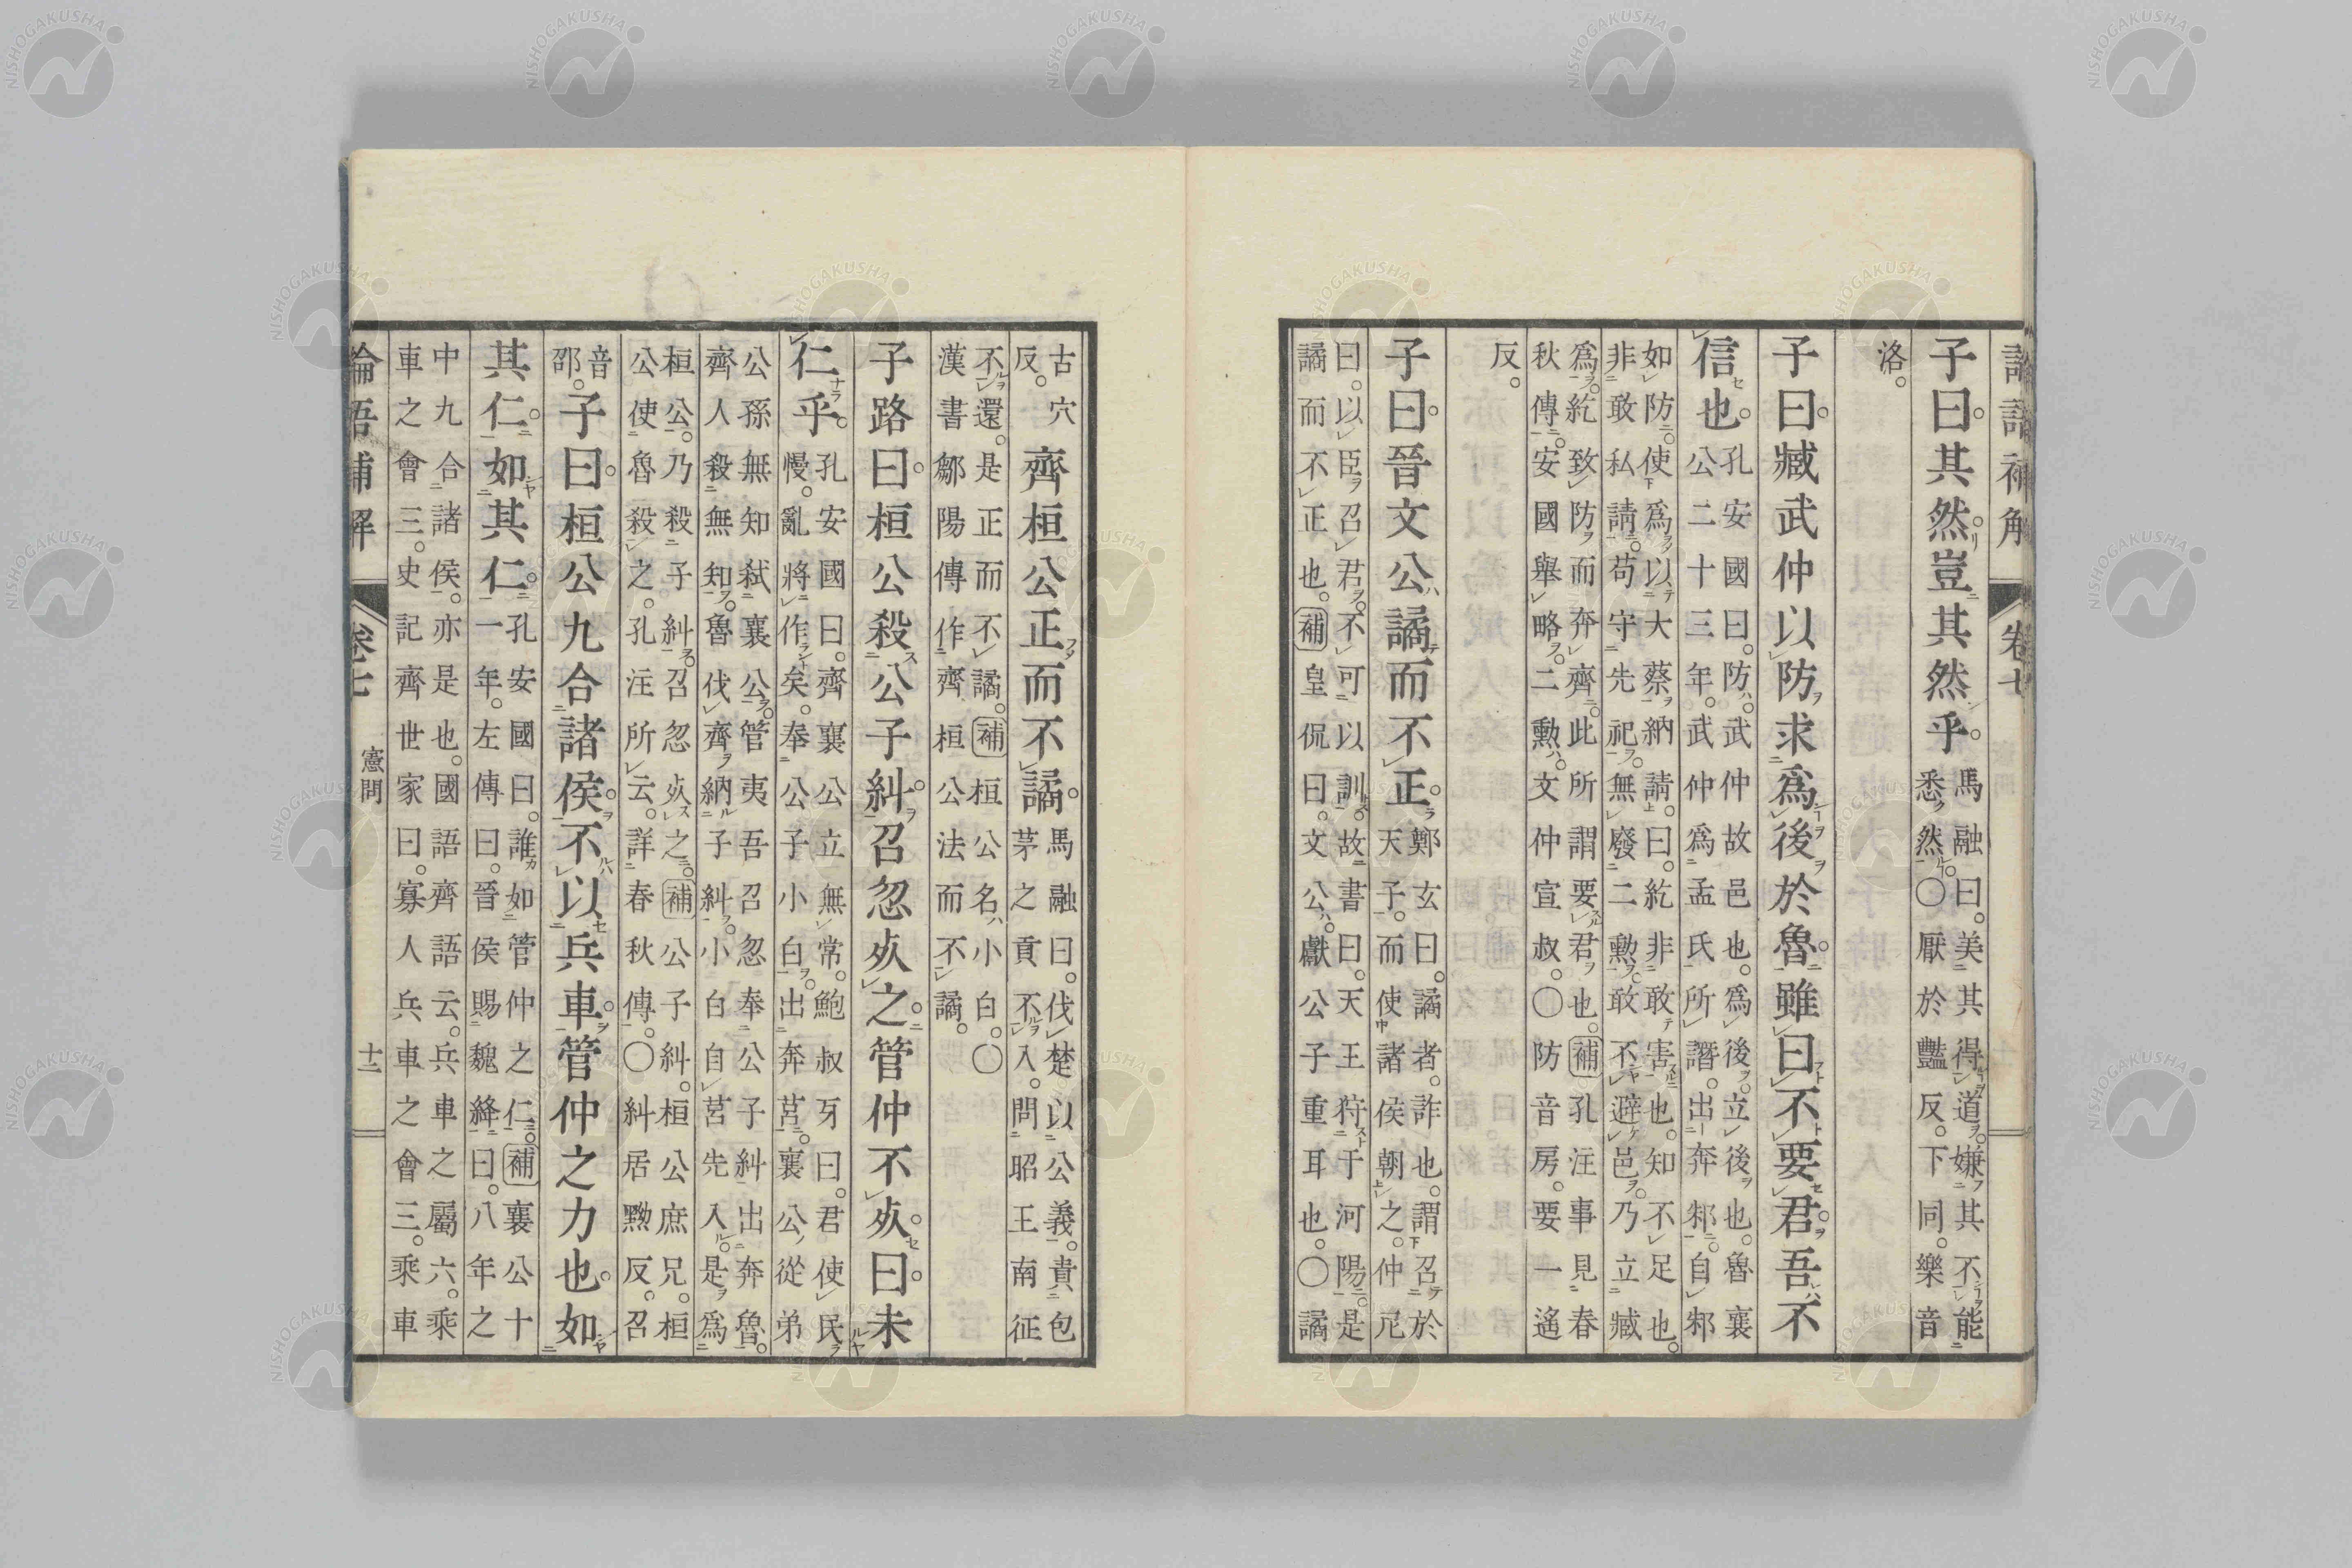 論語補解 卷七
子曰。其然。豈其然乎。
馬融曰。美其得道。嫌其不能
悉然。〇厭於豔反。下同。樂音
洛。
子曰。臧武仲以防求爲後於魯。雖曰不要君。吾不
信也。
孔安國曰。防。武仲故邑也。爲後。立後也。魯襄
公二十三年。武仲爲孟氏所譖。出奔邾。自邾
如防。使爲以大蔡納請。曰。紇非敢害也。知不足也。
非敢私請。苟守先祀。無廢二勳。敢不避邑。乃立臧
爲。紇致防而奔齊。此所謂要君也。補孔注事見春
秋傳。安國舉略。二勳。文仲宣叔。〇防音房。要一遙
反。
子曰。晉文公譎而不正。
鄭玄曰。譎者。詐也。謂召於
天子。而使諸侯朝之。仲尼
曰。以臣召君。不可以訓。故書曰。天王狩于河陽。是
譎而不正也。補皇侃曰。文公。獻公子重耳也。〇譎
古穴
反。
齊桓公正而不譎。
馬融曰。伐楚以公義。責包
茅之貢不入。問昭王南征
不還。是正而不譎。補桓公名小白。〇
漢書鄒陽傳作齊桓公法而不譎。
子路曰。桓公殺公子糾。召忽㱙之。管仲不㱙。曰。未
仁乎。
孔安國曰。齊襄公立無常。鮑叔牙曰。君使民
慢。亂將作矣。奉公子小白。出奔莒。襄公從弟
公孫無知弒襄公。管夷吾召忽奉公子糾出奔魯。
齊人殺無知。魯伐齊納子糾。小白自莒先入。是爲
桓公。乃殺子糾。召忽㱙之。補公子糾。桓公庶兄。桓
公使魯殺之。孔注所云。詳春秋傳。〇糾居黝反。召
音
邵。
子曰。桓公九合諸侯。不以兵車。管仲之力也。如
其仁。如其仁。
孔安國曰。誰如管仲之仁。補襄公十
一年。左傳曰。晉侯賜魏絳曰。八年之
中九合諸侯。亦是也。國語齊語云。兵車之屬六。乘
車之會三。史記齊世家曰。寡人兵車之會三。乘車
論語補解 卷七 憲問 十二